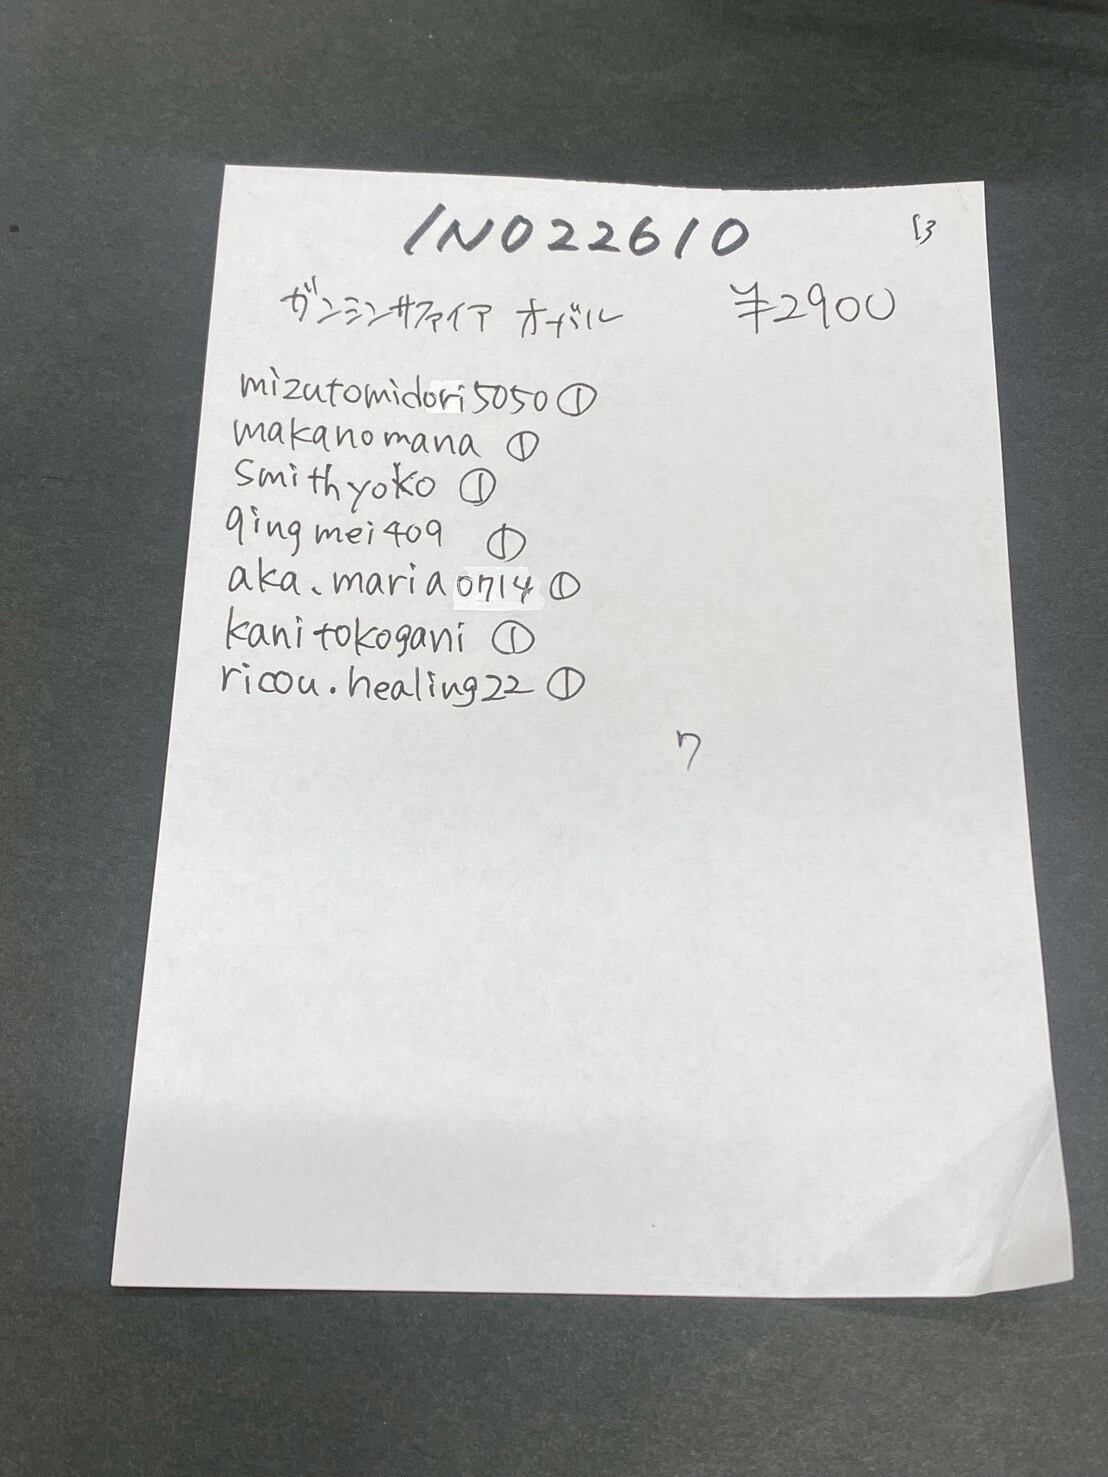 INO22610
13
ガンミンサファイア オーバル ¥2900
mizutomidori5050①
makanomana ①
smithyoko ①
qingmei409 ①
aka.maria0714 ①
kanitokogani ①
ricou.healing22 ①
7